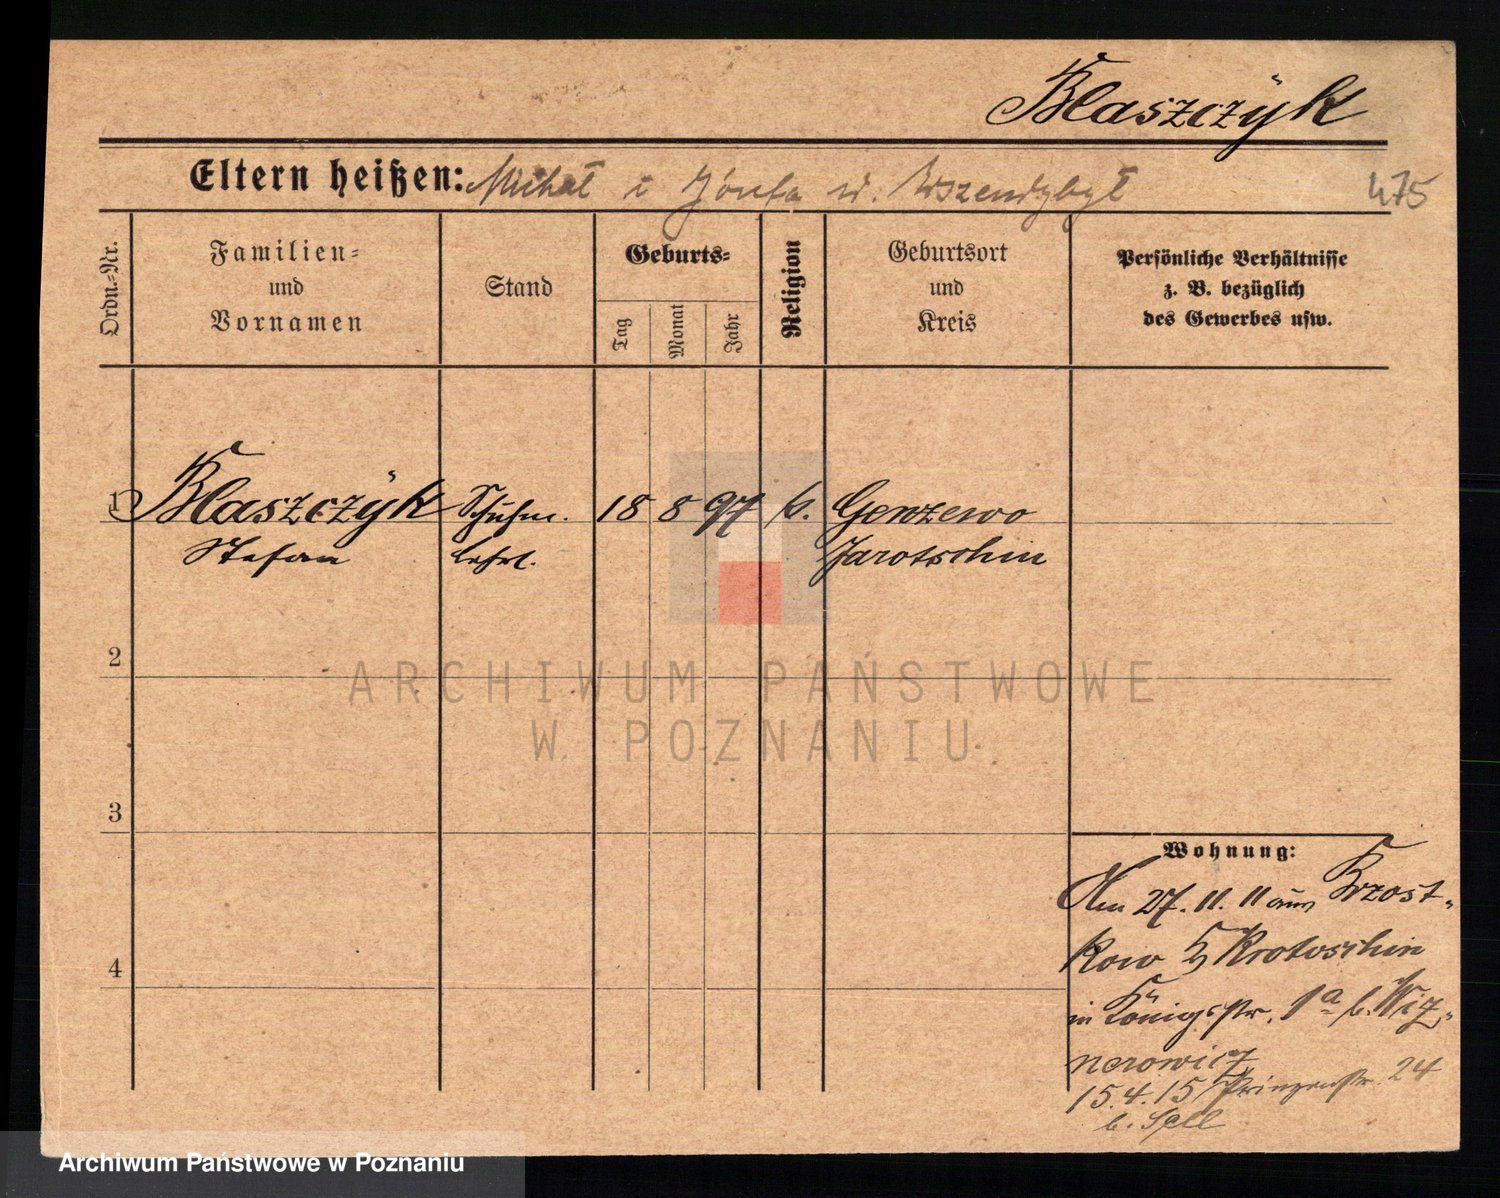 Blaszczÿk
Eltern heißen: Michał i Józefa
475
Ordn.-Nr.
Familien-
und
Vornamen
Stand
Geburts-
Tag
Monat
Jahr
Religion
Geburtsort
und
Kreis
Persönliche Verhältnisse
z. B. bezüglich
des Gewerbes usw.
1 Blaszczÿk Schuhm. 18 8 97 k. Gorzewo
Stefan Lehrl. Jarotschin
2
3
4
ARCHIWUM PAŃSTWOWE
W POZNANIU
Wohnung:
Am 27. 11. 11 aus Krzost-
kow Krotoschin
in Königstr. 1a b. Wiz-
nerowicz
15.4.15 Prinzenstr. 24
b. Sell
Archiwum Państwowe w Poznaniu